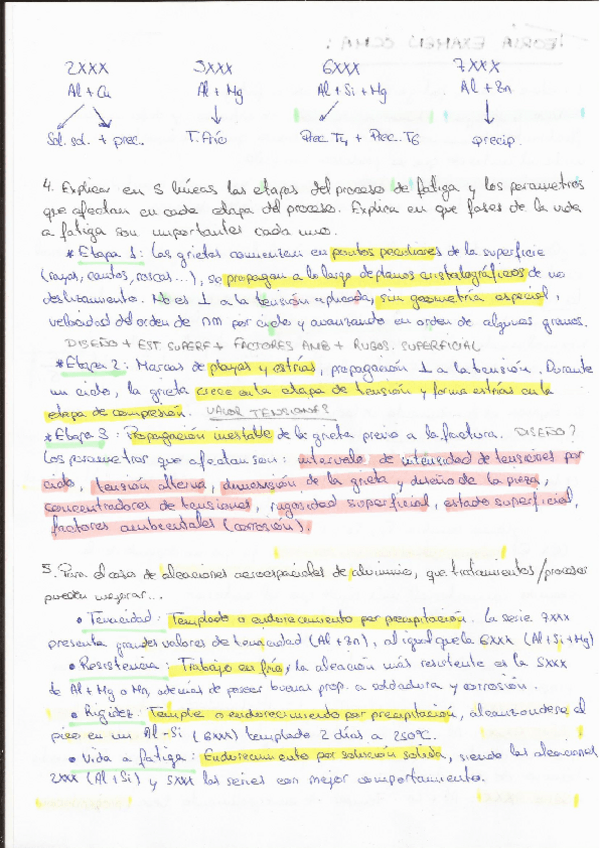 2XXX 5XXX 6XXX 7XXX
Al + Cu Al + Mg Al + Si + Mg Al + Zn
Sol. sol. + prec. T. Frío Prec. T4 + Prec. T6 precip.
4. Explicar en 5 líneas las etapas del proceso de fatiga y los parametros
que afectan en cada etapa del proceso. Explica en que fases de la vida
a fatiga son importantes cada uno.
* Etapa 1: Las grietas comienzan en puntos peculiares de la superficie
(rayas, cantos, roscas...), se propagan a lo largo de planos cristalográficos de no
deslizamiento. No es ⊥ a la tensión aplicada, sin geometría especial,
velocidad del orden de nm por ciclo y avanzando en orden de algunos granos.
DISEÑO + EST SUPERF + FACTORES AMB + RUGOS. SUPERFICIAL
* Etapa 2: Marcas de playas y estrías, propagación ⊥ a la tensión. Durante
un ciclo, la grieta crece en la etapa de tensión y forma estrías en la
etapa de compresión. VALOR TENSIONES
* Etapa 3: Propagación inestable de la grieta previo a la fractura. DISEÑO?
Los parametros que afectan son: intervalo de intensidad de tensiones por
ciclo, tensión alterna, dimensión de la grieta y diseño de la pieza,
concentradores de tensiones, rugosidad superficial, estado superficial,
factores ambientales (corrosión).
5. Para el caso de aleaciones aeroespaciales de aluminio, que tratamientos/procesos
pueden mejorar...
• Tenacidad: Templado o endurecimiento por precipitación. La serie 7XXX
presenta grandes valores de tenacidad (Al + Zn), al igual que la 6XXX (Al + Si + Mg)
• Resistencia: Trabajo en frío, la aleación más resistente es la 5XXX
de Al + Mg o Mn, además de poseer buenas prop. a soldadura y corrosión.
• Rigidez: Temple o endurecimiento por precipitación, alcanzandose el
pico en un Al-Si (6XXX) templado 2 días a 250ºC.
• Vida a fatiga: Endurecimiento por solución solida, siendo las aleaciones
2XXX (Al + Si) y 5XXX las series con mejor comportamiento.